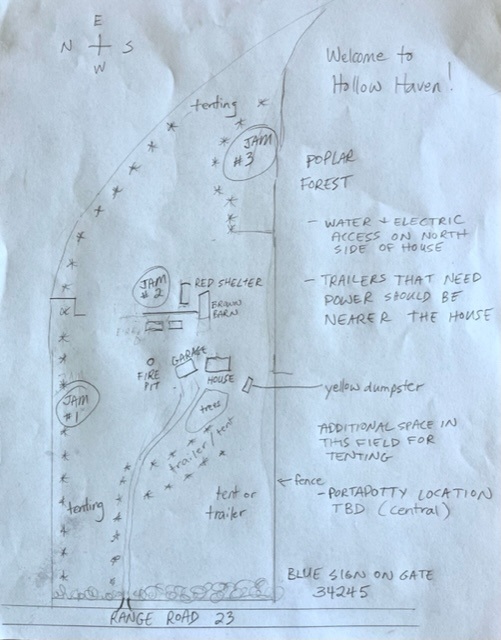 E
N
S
W
Welcome to
Hollow Haven!
tenting
JAM
#3
POPLAR
FOREST
- WATER + ELECTRIC
ACCESS ON NORTH
SIDE OF HOUSE
JAM
#2
RED SHELTER
BROWN
BARN
- TRAILERS THAT NEED
POWER SHOULD BE
NEARER THE HOUSE
FIRE
PIT
GARAGE
HOUSE
yellow dumpster
JAM
#1
trees
trailer/tent
ADDITIONAL SPACE IN
THIS FIELD FOR
TENTING
tenting
tent or
trailer
fence
- PORTAPOTTY LOCATION
TBD (central)
BLUE SIGN ON GATE
34245
RANGE ROAD 23